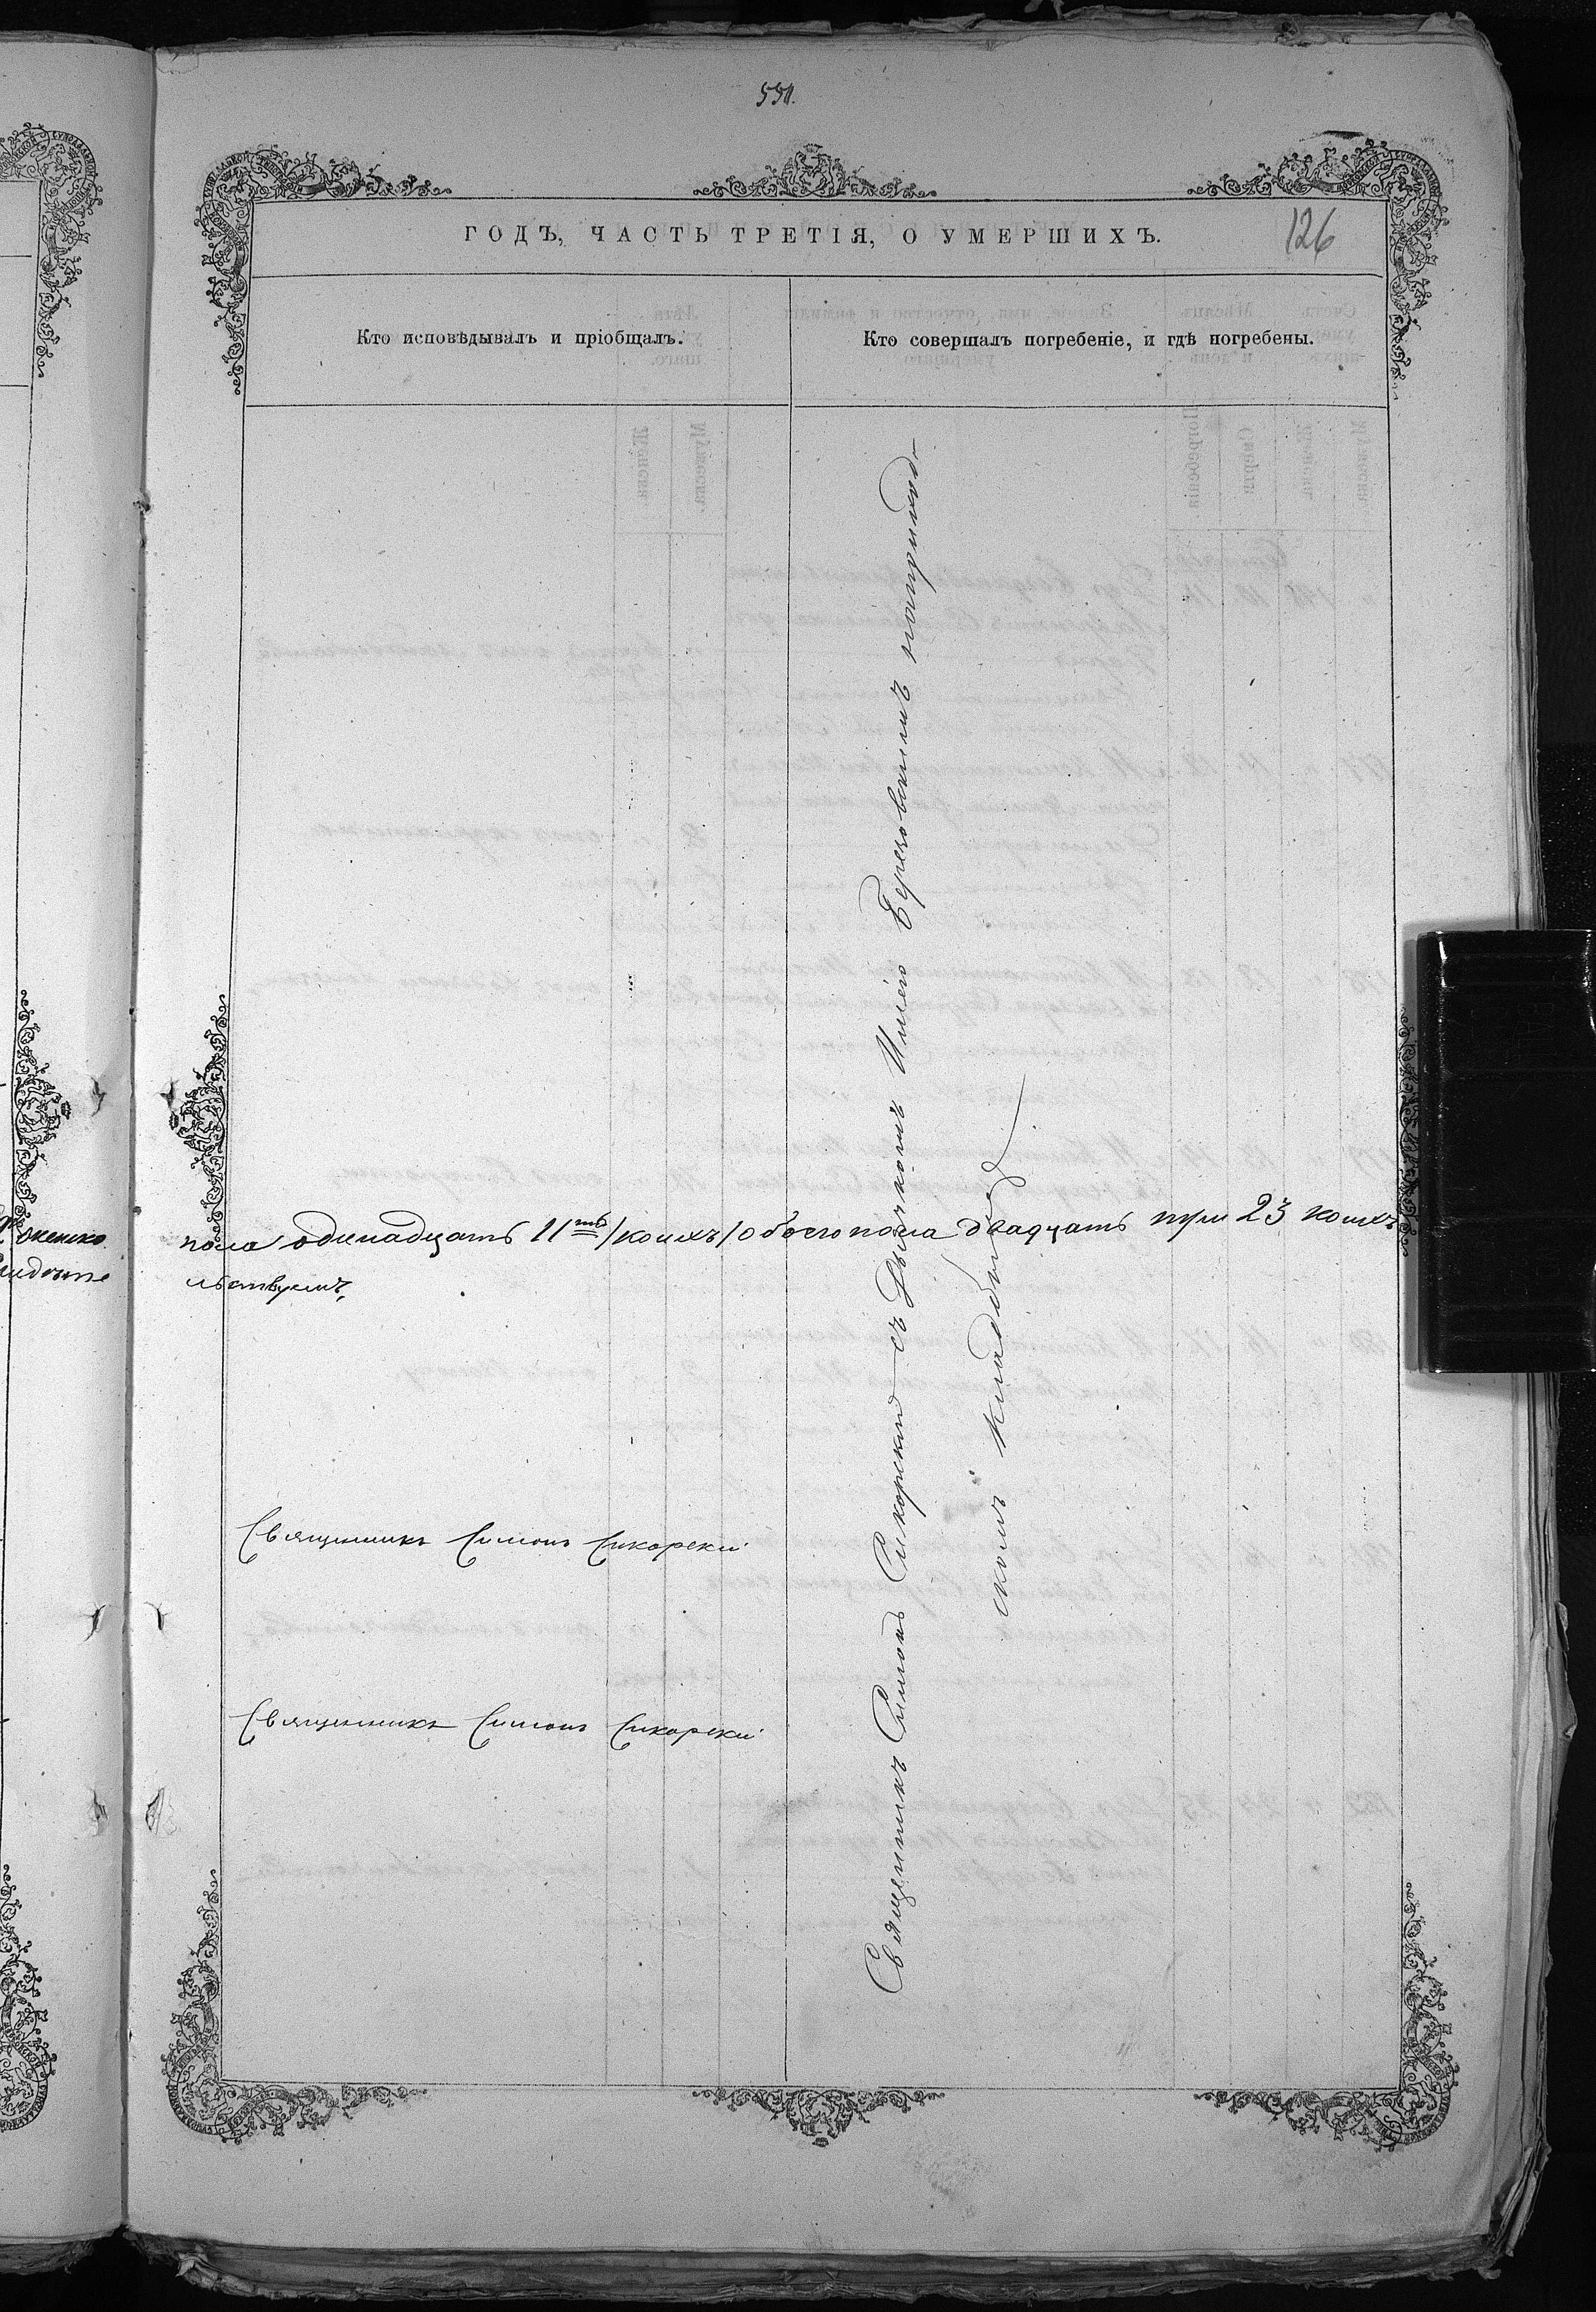 551.
ГОДЪ, ЧАСТЬ ТРЕТІЯ, О УМЕРШИХЪ.
126
Кто исповѣдывалъ и пріобщалъ.
Кто совершалъ погребеніе, и гдѣ погребены.
пола одинадцать 11ть /коихъ/ обоего пола двадцать три 23 коихъ
льствуемъ,
Священникъ Симонъ Сикорскій
Священникъ Симонъ Сикорскій
Священникъ Симонъ Сикорскій съ Дьячкомъ Березовскимъ наприход-
скомъ кладбищѣ